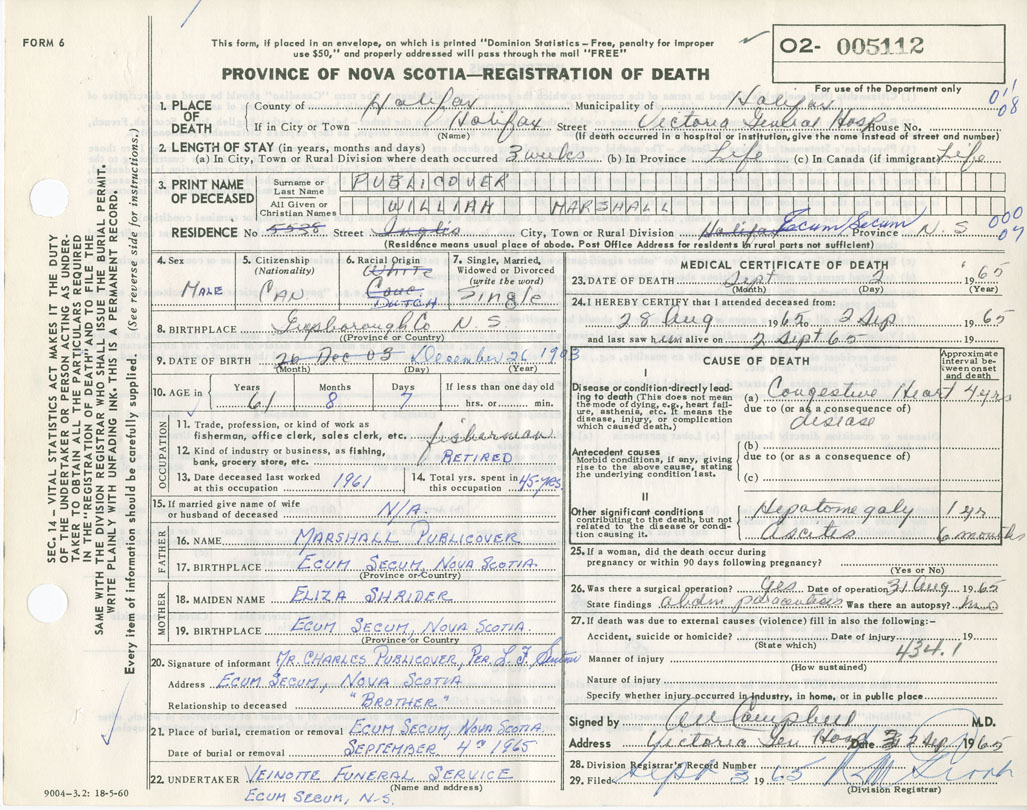 FORM 6
This form, if placed in an envelope, on which is printed "Dominion Statistics – Free, penalty for improper
use $50," and properly addressed will pass through the mail "FREE"
02- 005112
PROVINCE OF NOVA SCOTIA—REGISTRATION OF DEATH
For use of the Department only
1. PLACE OF DEATH
County of Halifax Municipality of Halifax
If in City or Town Halifax Street Victoria General Hosp House No.
(Name) (If death occurred in a hospital or institution, give the name instead of street and number)
2. LENGTH OF STAY (in years, months and days)
(a) In City, Town or Rural Division where death occurred 3 weeks (b) In Province Life (c) In Canada (if immigrant) Life
3. PRINT NAME OF DECEASED
Surname or Last Name PUBLICOVER
All Given or Christian Names WILLIAM MARSHALL
RESIDENCE No 5538 Street Inglis City, Town or Rural Division Halifax Ecum Secum Province N.S
(Residence means usual place of abode. Post Office Address for residents in rural parts not sufficient)
4. Sex
MALE
5. Citizenship
(Nationality)
CAN
6. Racial Origin
White
Cauc
DUTCH
7. Single, Married,
Widowed or Divorced
(write the word)
Single
8. BIRTHPLACE Guysborough Co N.S
(Province or Country)
9. DATE OF BIRTH 26 Dec 03 December 26 1903
(Month) (Day) (Year)
10. AGE in
Years Months Days If less than one day old
61 8 7 hrs. or min.
OCCUPATION
11. Trade, profession, or kind of work as
fisherman, office clerk, sales clerk, etc. fisherman
12. Kind of industry or business, as fishing,
bank, grocery store, etc. RETIRED
13. Date deceased last worked
at this occupation 1961
14. Total yrs. spent in
this occupation 45-yrs
15. If married give name of wife
or husband of deceased N/A.
FATHER
16. NAME MARSHALL PUBLICOVER
17. BIRTHPLACE ECUM SECUM, NOVA SCOTIA.
(Province or Country)
MOTHER
18. MAIDEN NAME ELIZA SHRIDER
19. BIRTHPLACE ECUM SECUM, NOVA SCOTIA
(Province or Country)
20. Signature of informant MR. CHARLES PUBLICOVER, PER L.F.
Address ECUM SECUM, NOVA SCOTIA
Relationship to deceased "BROTHER"
21. Place of burial, cremation or removal ECUM SECUM, NOVA SCOTIA
Date of burial or removal SEPTEMBER 4TH 1965
22. UNDERTAKER VEINOTTE FUNERAL SERVICE
(Name and address)
ECUM SECUM, N.S.
9004–3.2: 18-5-60
MEDICAL CERTIFICATE OF DEATH
23. DATE OF DEATH Sept 2 1965
(Month) (Day) (Year)
24. I HEREBY CERTIFY that I attended deceased from:
28 Aug 1965 to 2 Sep 1965
and last saw him alive on 2 Sept 65 19
CAUSE OF DEATH
Approximate interval between onset and death
I
Disease or condition directly leading to death (This does not mean the mode of dying, e.g., heart failure, asthenia, etc. It means the disease, injury, or complication which caused death.)
(a) Congestive Heart 4 yrs
due to (or as a consequence of)
disease
Antecedent causes
Morbid conditions, if any, giving rise to the above cause, stating the underlying condition last.
(b)
due to (or as a consequence of)
(c)
II
Other significant conditions
contributing to the death, but not related to the disease or condition causing it.
Hepatomegaly 1 yr
ascites 6 months
25. If a woman, did the death occur during
pregnancy or within 90 days following pregnancy?
(Yes or No)
26. Was there a surgical operation? Yes Date of operation 31 Aug 1965
State findings abdm paracentesis Was there an autopsy? No
27. If death was due to external causes (violence) fill in also the following:–
Accident, suicide or homicide? Date of injury 19
(State which)
434.1
Manner of injury
(How sustained)
Nature of injury
Specify whether injury occurred in industry, in home, or in public place
Signed by Campbell M.D.
Address Victoria Gen Hosp Date 2 Sep 1965
28. Division Registrar's Record Number
29. Filed Sept 3 1965
(Division Registrar)
SEC. 14 – VITAL STATISTICS ACT MAKES IT THE DUTY
OF THE UNDERTAKER OR PERSON ACTING AS UNDER-
TAKER TO OBTAIN ALL THE PARTICULARS REQUIRED
IN THE "REGISTRATION OF DEATH" AND TO FILE THE
SAME WITH THE DIVISION REGISTRAR WHO SHALL ISSUE THE BURIAL PERMIT.
WRITE PLAINLY WITH UNFADING INK. THIS IS A PERMANENT RECORD.
Every item of information should be carefully supplied. (See reverse side for instructions.)